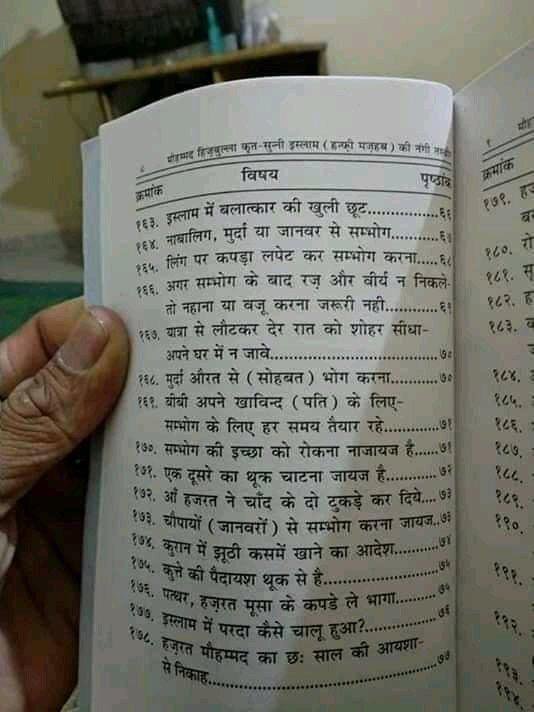 ८ मौहम्मद हिज़बुल्ला कृत-सुन्नी इस्लाम ( हनफ़ी मज़हब ) की नंगी तस्वीर
क्रमांक विषय पृष्ठांक
१६३. इस्लाम में बलात्कार की खुली छूट..................६६
१६४. नाबालिग, मुर्दा या जानवर से सम्भोग...............६७
१६५. लिंग पर कपड़ा लपेट कर सम्भोग करना.....६८
१६६. अगर सम्भोग के बाद रज़ और वीर्य न निकले-
तो नहाना या वजू करना जरूरी नही...........६९
१६७. यात्रा से लौटकर देर रात को शोहर सीधा-
अपने घर में न जावे...........................७०
१६८. मुर्दा औरत से ( सोहबत ) भोग करना..........७०
१६९. बीबी अपने खाविन्द ( पति ) के लिए-
सम्भोग के लिए हर समय तैयार रहे..........७१
१७०. सम्भोग की इच्छा को रोकना नाजायज है......७१
१७१. एक दूसरे का थूक चाटना जायज है...........७२
१७२. आँ हजरत ने चाँद के दो टुकड़े कर दिये....७३
१७३. चौपायों ( जानवरों ) से सम्भोग करना जायज..७३
१७४. कुरान में झूठी कसमें खाने का आदेश..........७४
१७५. कुत्ते की पैदायश थूक से है.....................७५
१७६. पत्थर, हज़रत मूसा के कपडे ले भागा.........७५
१७७. इस्लाम में परदा कैसे चालू हुआ?...............७६
१७८. हज़रत मौहम्मद का छः साल की आयशा-
से निकाह.......................................७७
क्रमांक
१७९.
१८०.
१८१.
१८२.
१८३.
१८४.
१८५.
१८६.
१८७.
१८८.
१८९.
१९०.
१९१.
१९२.
१९३.
१९४.